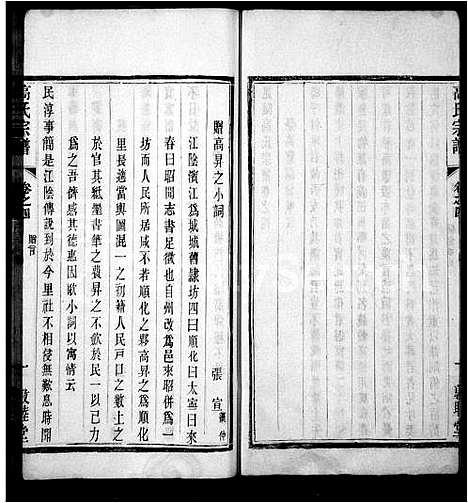 贈高昇之小詞
張宣
江陰濱江爲城城舊隸坊四曰順化曰太寧曰來
春曰昭閒志書足徵也自州改爲邑來昭併然二
坊而人民所居咸不若順化之夥高昇之爲順化
里長適當輿圖混一之初籍人民戶口之登
於官其紙墨書筆之費昇之不歛於民一以己力
爲之吾儕感其德惠因歌小詞以寓情云
民淳事簡是江陰傳說到於今里社不相侵無歎息時聞
高氏宗譜
卷之四
贈言
一
敦睦堂
高氏宗譜
卷之四
一
敦睦堂